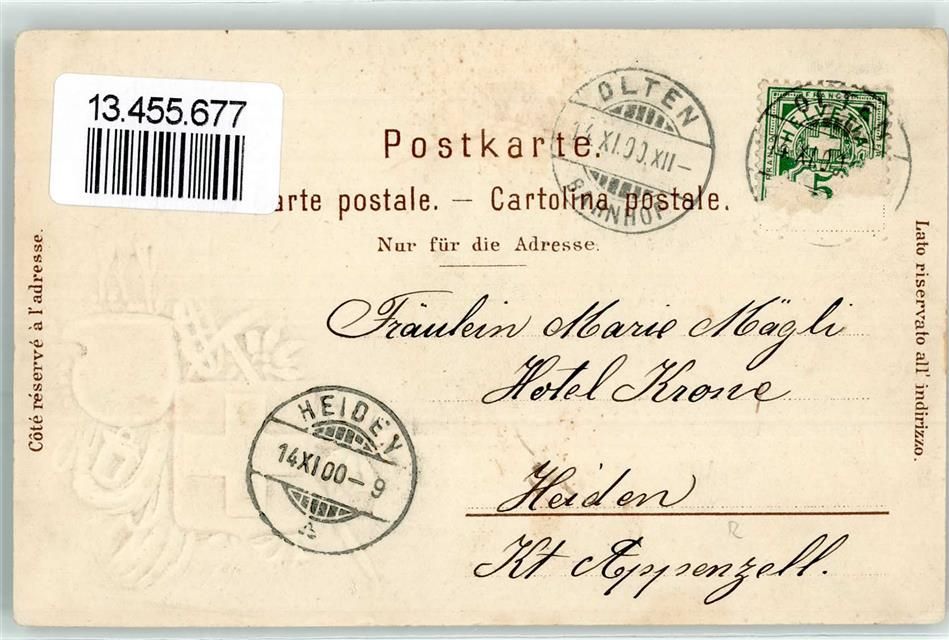 13.455.677
Postkarte.
arte postale. — Cartolina postale.
Nur für die Adresse.
OLTEN
14.XI.00.XII–
BAHNHOF
FRANCO
HELVETIA
5
Côté réservé à l'adresse.
Lato riservato all' indirizzo.
Fräulein Marie Mägli
Hotel Krone
Heiden
Kt Appenzell.
HEIDEN
14 XI 00 – 9
R